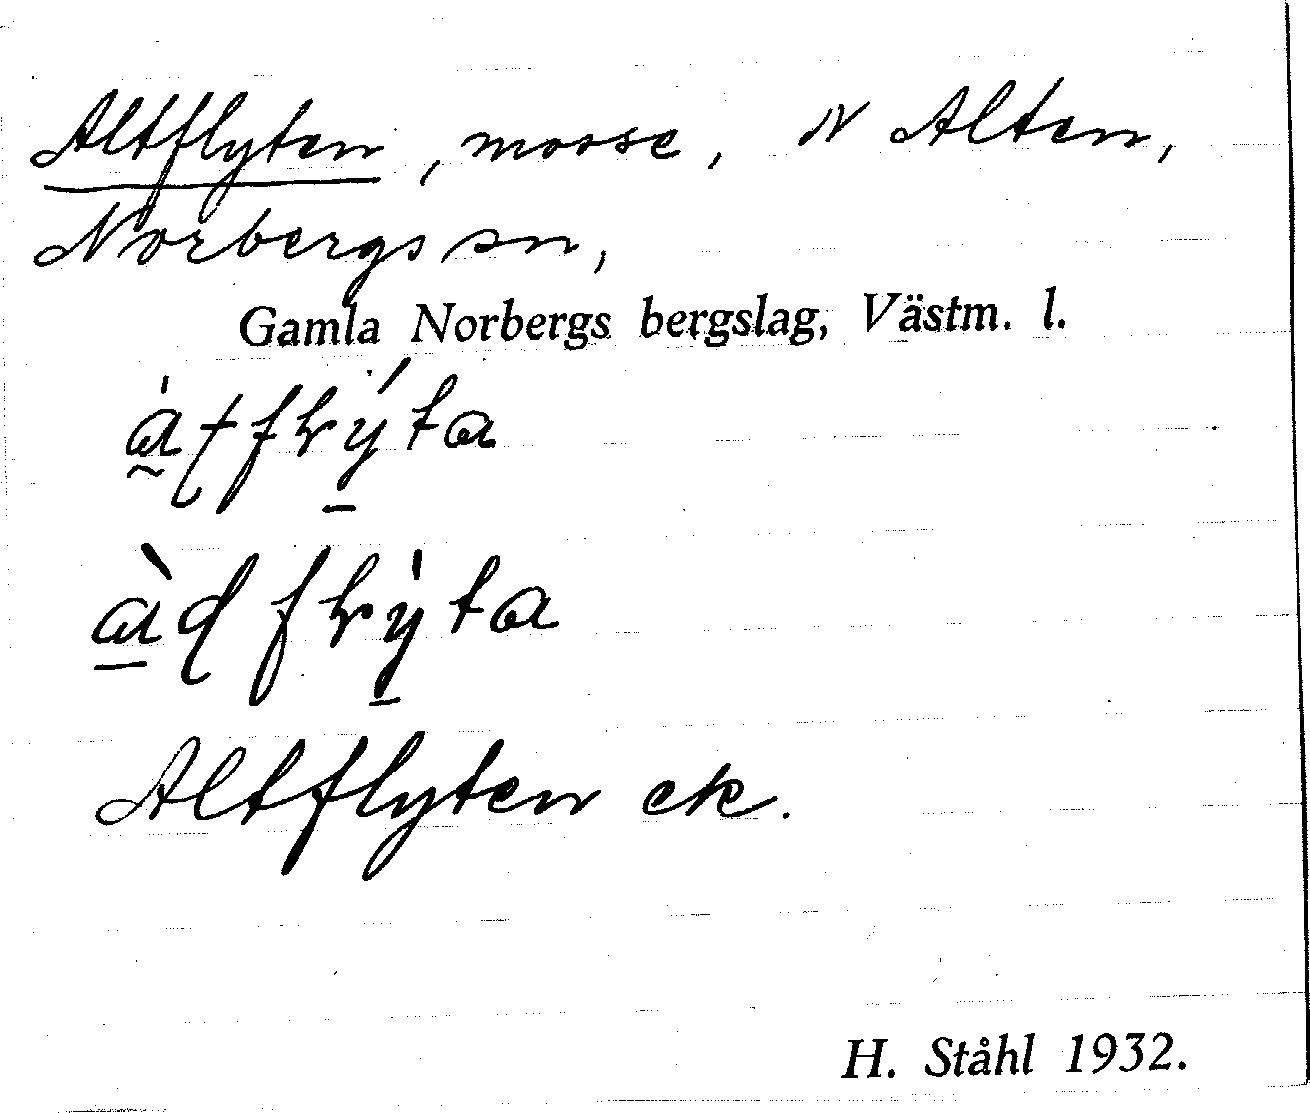 Altflyten, mosse, N Alten,
Norbergs sn,
Gamla Norbergs bergslag, Västm. l.
Altflyten ek.
H. Ståhl 1932.